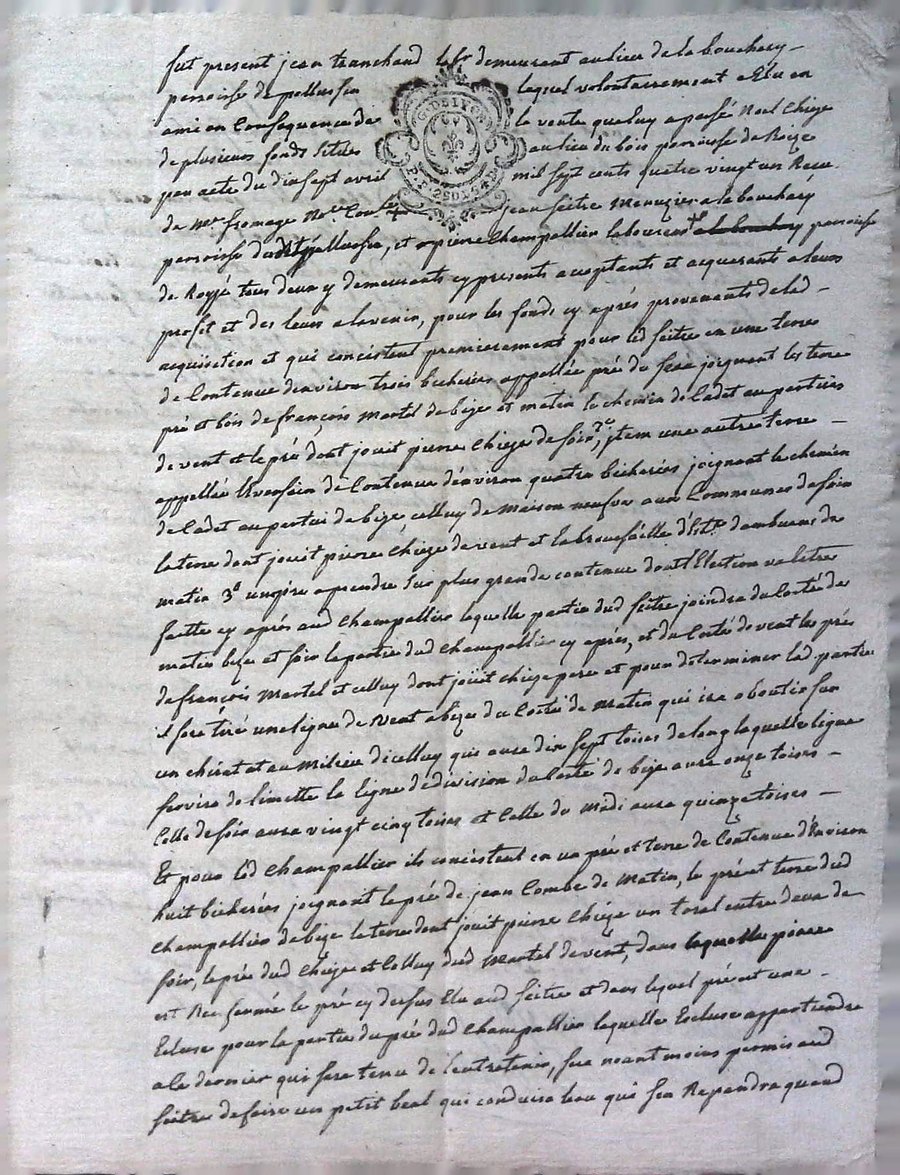 fut present jean tranchand labr demeurant au lieu de la bouchary
parroisse de pellussin laquel volontairement a Elu en
ami en Consequence de la vente que luy a passé Noel Chieze
de plusieurs fonds situés au lieu du bois parroisse de Roize
par acte du dix sept avril mil sept cents quatre vingt un Recu
de Me fromage Nre jean feitre Menuzier a la bouchary
parroisse dud pellussin, et a pierre Champallier laboureur a la bouchary parroisse
de Royzé tous deux y demeurants cy presents acceptants et acquerants a leurs
profit et des leurs a lavenir, pour les fonds cy après provenants de lad
acquisition et qui concistent premierement pour led feitre en une terre
de Contenue denviron trois bicherées appellée pré du joignant les terre
pré et bois de françois Martel de bize et matin le chemin de Cadet au pertuis
de vent et le pré dont jouit pierre Chieze de soir, jtem une autre terre
appellée de Contenue denviron quatre bicherées joignant le chemin
de Cadet au pertui de bize, celluy de Maison neufve aux Communes de soir
la terre dont jouit pierre Chieze de vent et la broussaille d'Ete dambuens de
matin 3° un a prendre sur plus grande contenue dont Election va letre
faitte cy après aud Champallier laquelle partie dud feitre joindra du Costé de
matin bize et soir la partie dud Champallier cy après, et du Costé de vent les prés
de françois Martel et celluy dont jouit chieze pere et pour determiner lad partie
il sera tiré une ligne de vent a bize du Costé de Matin qui ira aboutir sur
un chirat et au Milieu dicelluy qui aura dix sept toises de long laquelle ligne
servira de limitte la ligne de division du Costé de bize aura onze toises
Celle de soir aura vingt cinq toises et Celle du Midi aura quinze toises
Et pour led Champallier ils concistent en un pré et terre de Contenue d'Environ
huit bicherées joignant le pré de jean Combe de Matin, le pré et terre dud
Champallier de bize la terre dont jouit pierre Chieze un toral entre deux de
soir, le pré dud Chieze et Celluy dud Martel de vent, dans laquelle piece
est Renfermée le pré cy dessus Elu aud feitre et dans lequel pré est une
Ecluse pour la partie du pré dud Champallier laquelle Escluse appartiendra
a le dernier qui sera tenu de l'entretenir, sera neant moins permis aud
feitre de faire un petit beal qui conduira leau qui sen Repandra quand